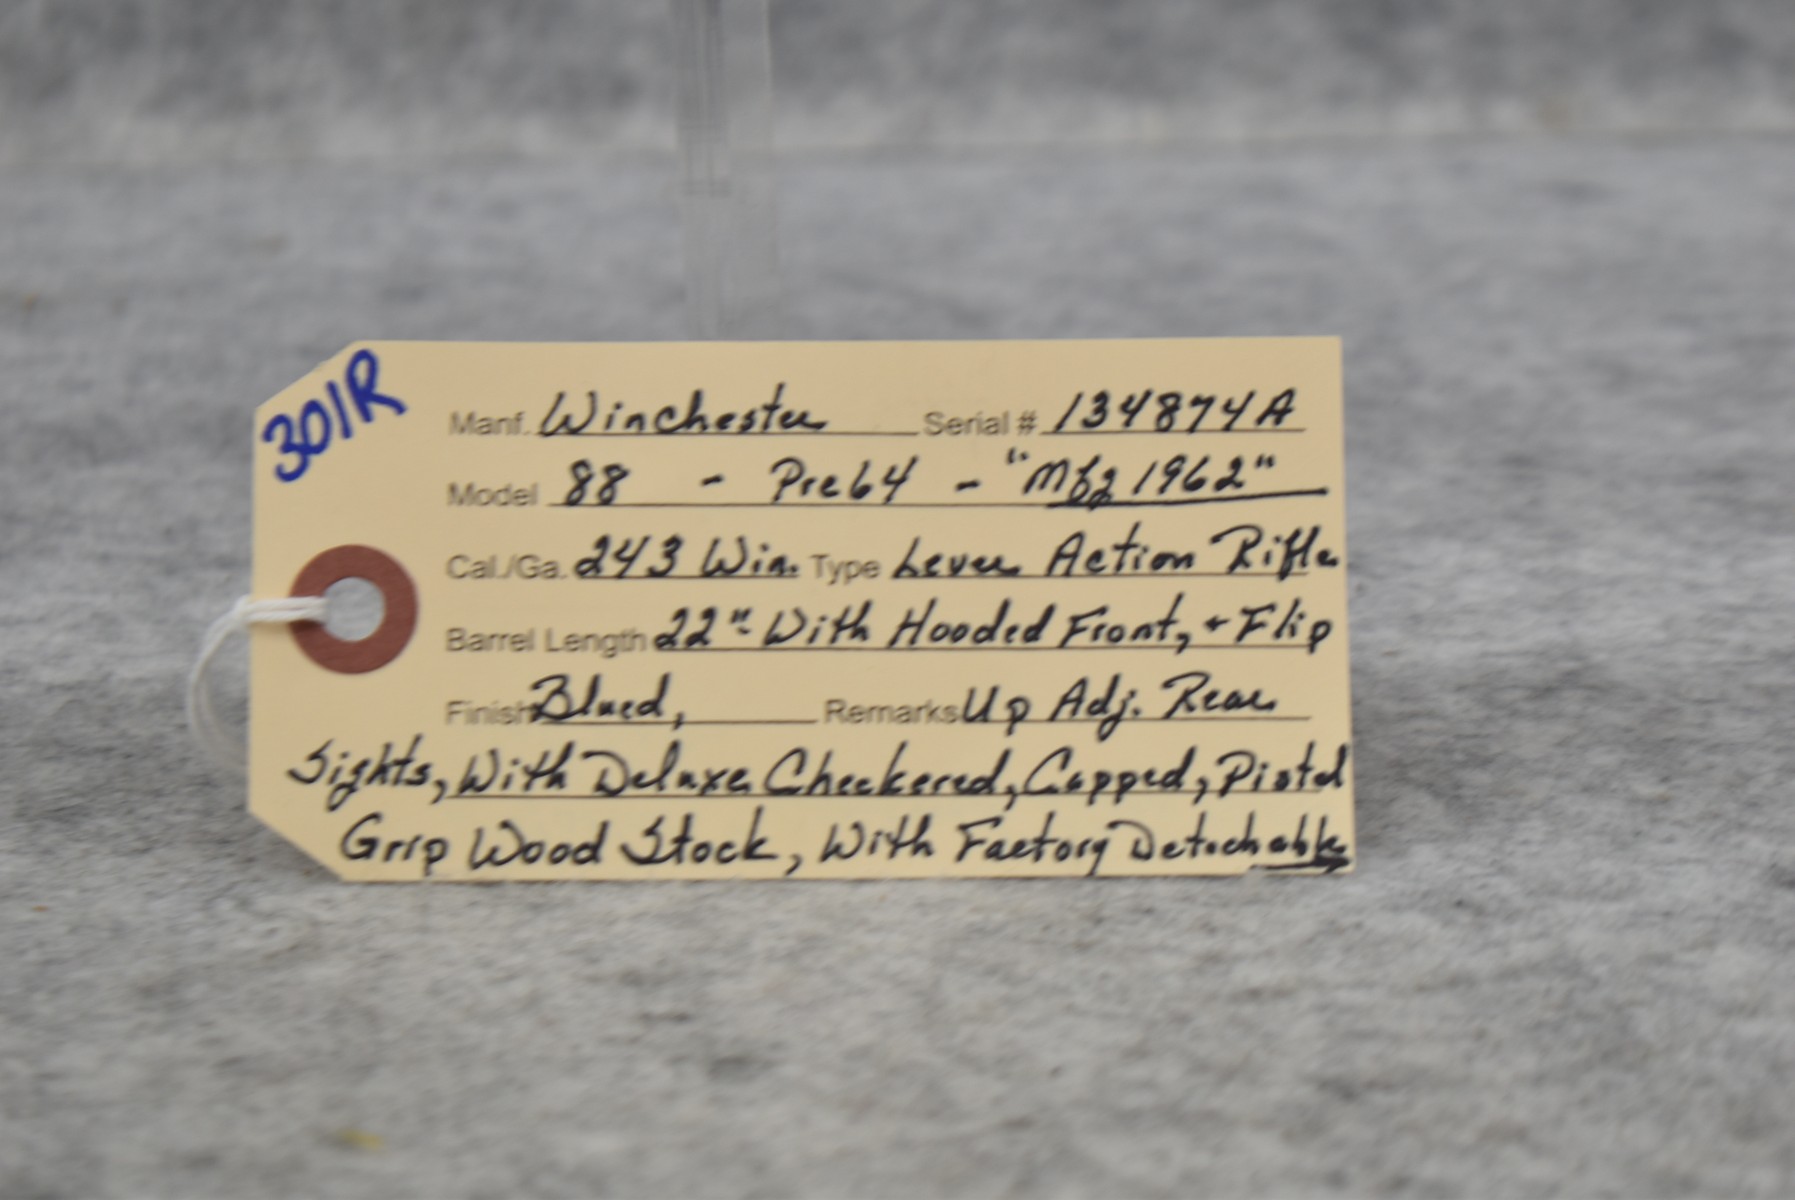 301R
Manf. Winchester Serial # 134874A
Model 88 - Pre64 - "Mfg 1962"
Cal./Ga. 243 Win. Type Lever Action Rifle
Barrel Length 22" With Hooded Front, + Flip
Finish Blued, Remarks Up Adj. Rear
Sights, With Deluxe Checkered, Capped, Pistol
Grip Wood Stock, With Factory Detachable